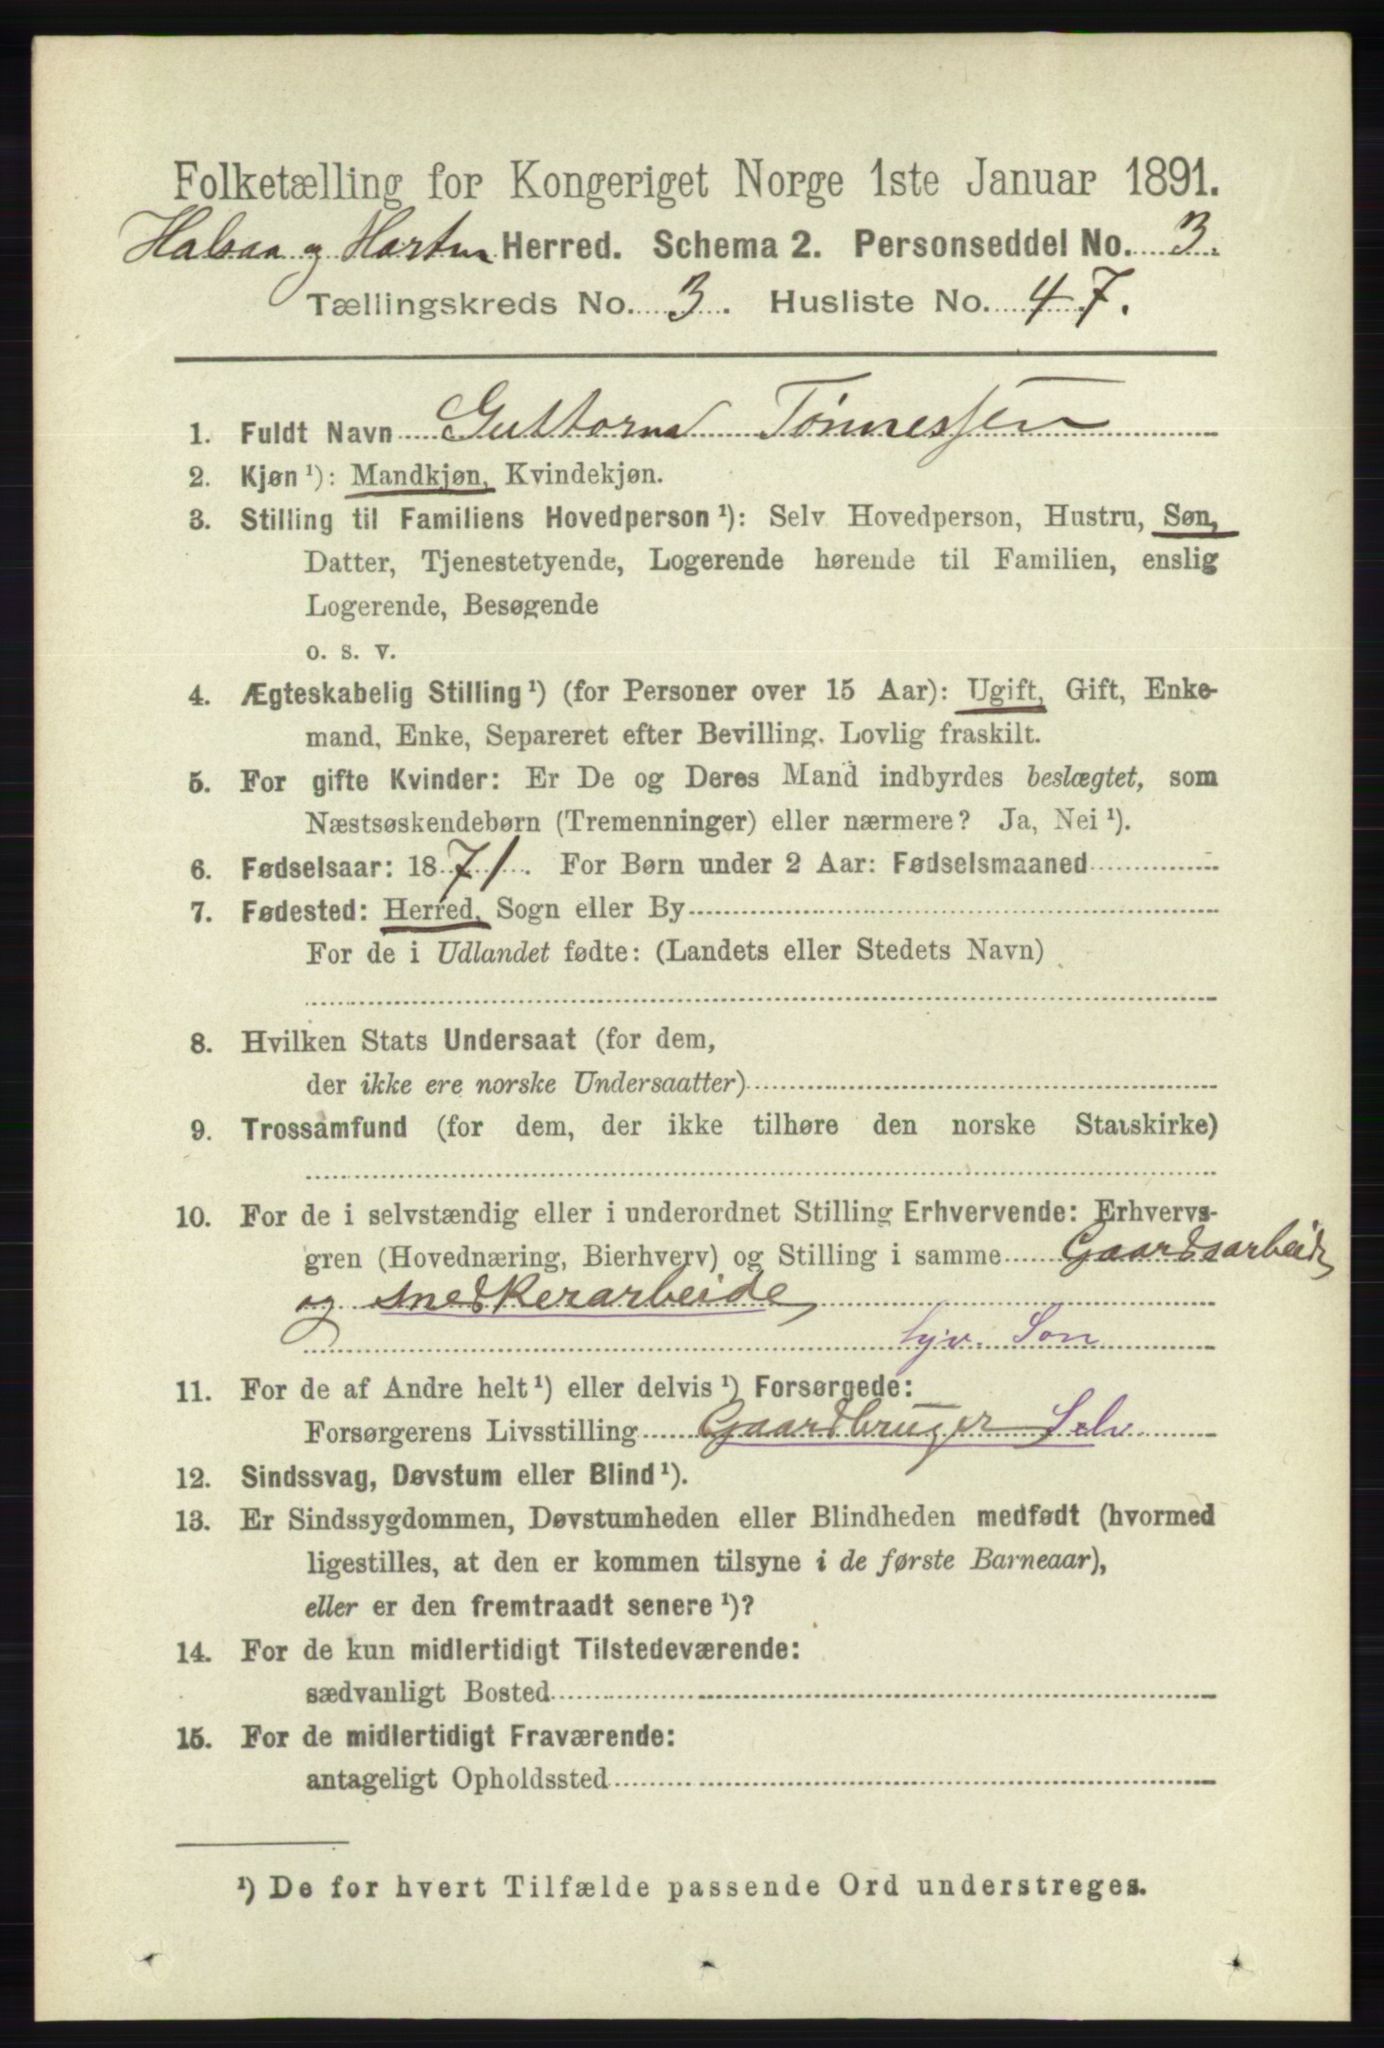 Folketælling for Kongeriget Norge 1ste Januar 1891.
Halsaa og Hartm Herred. Schema 2. Personseddel No. 3.
Tællingskreds No. 3. Husliste No. 47.
1. Fuldt Navn Guttorm Tønnessen
2. Kjøn ¹): Mandkjøn, Kvindekjøn.
3. Stilling til Familiens Hovedperson ¹): Selv Hovedperson, Hustru, Søn,
Datter, Tjenestetyende, Logerende hørende til Familien, enslig
Logerende, Besøgende
o. s. v.
4. Ægteskabelig Stilling ¹) (for Personer over 15 Aar): Ugift, Gift, Enke-
mand, Enke, Separeret efter Bevilling. Lovlig fraskilt.
5. For gifte Kvinder: Er De og Deres Mand indbyrdes beslægtet, som
Næstsøskendebørn (Tremenninger) eller nærmere? Ja, Nei ¹).
6. Fødselsaar: 1871. For Børn under 2 Aar: Fødselsmaaned
7. Fødested: Herred, Sogn eller By
For de i Udlandet fødte: (Landets eller Stedets Navn)
8. Hvilken Stats Undersaat (for dem,
der ikke ere norske Undersaatter)
9. Trossamfund (for dem, der ikke tilhøre den norske Statskirke)
10. For de i selvstændig eller i underordnet Stilling Erhvervende: Erhvervs-
gren (Hovednæring, Bierhverv) og Stilling i samme Gaardsarbeide
og snedkerarbeide
hjv. Søn
11. For de af Andre helt ¹) eller delvis ¹) Forsørgede:
Forsørgerens Livsstilling Gaardbruger Selv
12. Sindssvag, Døvstum eller Blind ¹).
13. Er Sindssygdommen, Døvstumheden eller Blindheden medfødt (hvormed
ligestilles, at den er kommen tilsyne i de første Barneaar),
eller er den fremtraadt senere ¹)?
14. For de kun midlertidigt Tilstedeværende:
sædvanligt Bosted
15. For de midlertidigt Fraværende:
antageligt Opholdssted
¹) De for hvert Tilfælde passende Ord understreges.